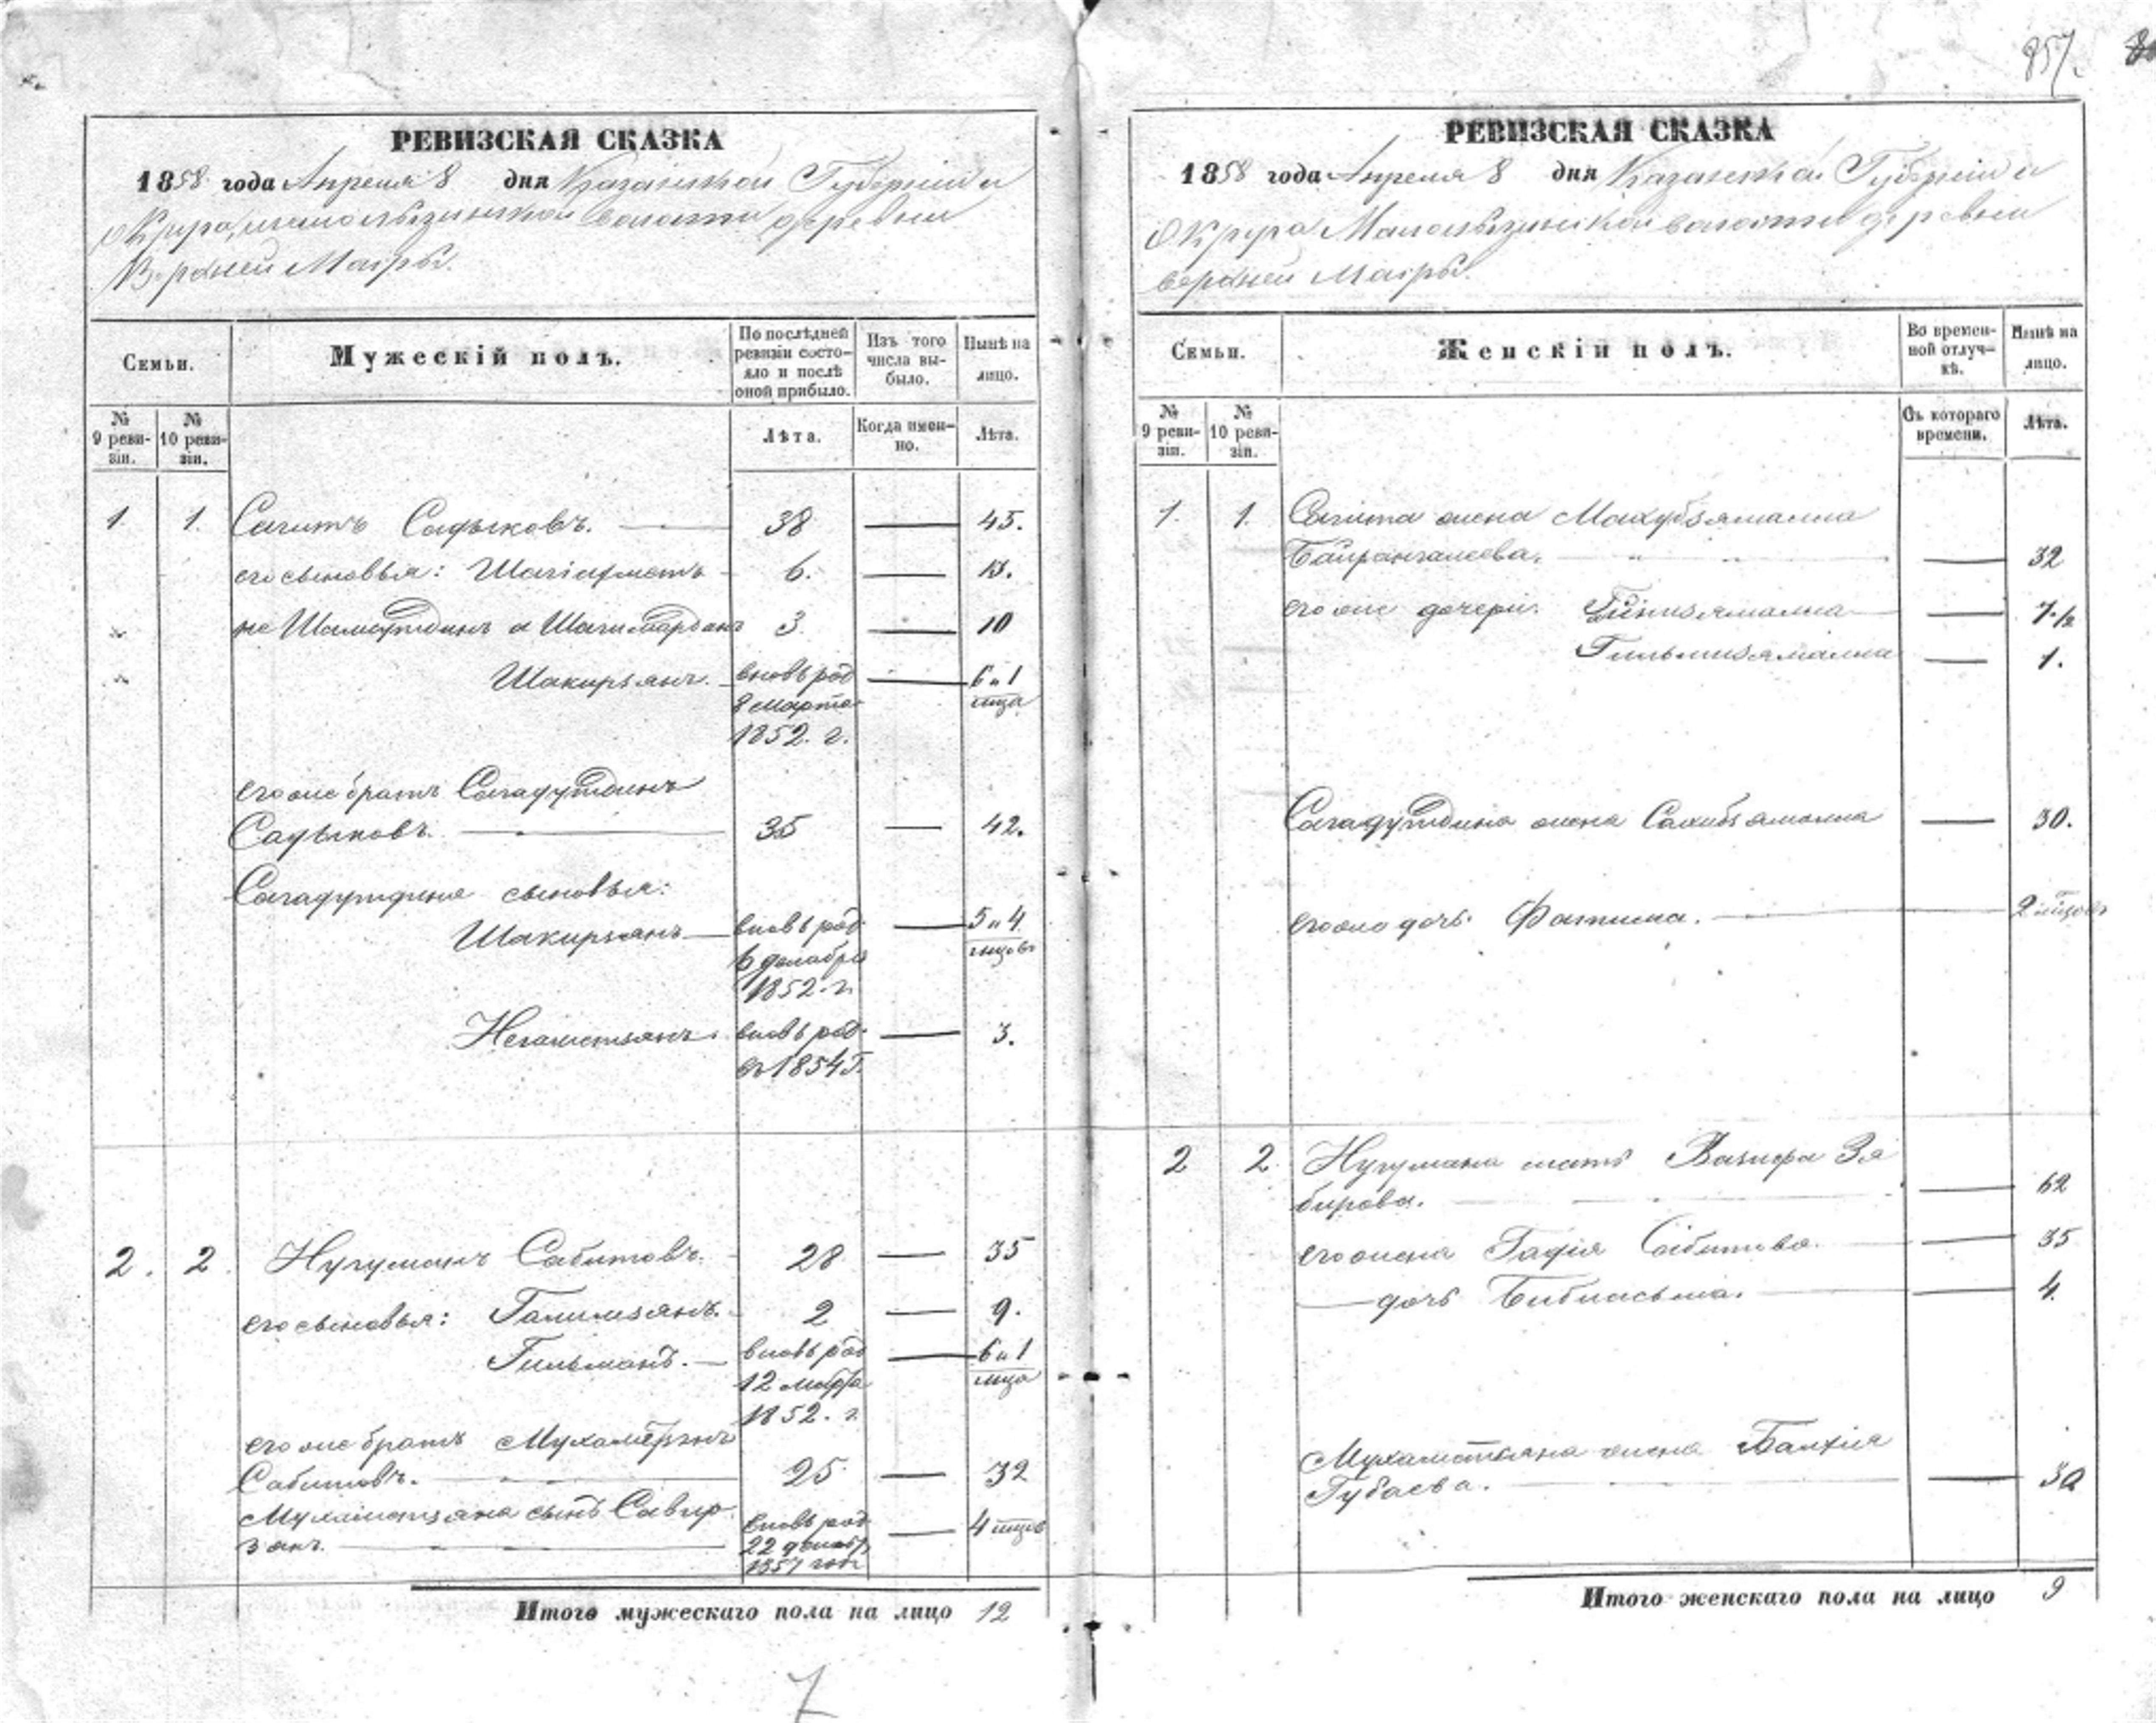 857.
РЕВИЗСКАЯ СКАЗКА
1858 года Апреля 8 дня Казанской Губернии и
Округа, волости деревни
Верхней Магры.
Семьи.
Мужескій полъ.
По послѣдней ревизіи состо-
яло и послѣ оной прибыло.
Изъ того числа вы-
было.
Нынѣ на лицо.
№ 9 реви-
зіи.
№ 10 реви-
зіи.
Лѣта.
Когда имен-
но.
Лѣта.
1. 1. Сагитъ Садыковъ. 38 45.
его сыновья: Шагіахметъ 6. 13.
не Шамсутдинъ а Шагимарданъ 3. 10
Шакирзянъ. вновь род 6 и 1
8 марта мца
1852. г.
его же братъ Сагадутдинъ
Садыковъ. 35 42.
Сагадутдина сыновья:
Шакирзянъ вновь род 5 и 4
6 декабря мцовъ
1852. г.
Негаметзянъ. вновь род. 3.
въ 1854 г.
2. 2. Нугуманъ Сабитовъ. 28 35
его сыновья: Галимзянъ. 2 9.
Гильманъ. вновь род 6 и 1
12 марта мца
1852. г.
его же братъ Мухаметзянъ
Сабитовъ. 25 32
Мухаметзяна сынъ Савир
зянъ. вновь род 4 мцов
22 декабр
1857 года
Итого мужескаго пола на лицо 12
7
РЕВИЗСКАЯ СКАЗКА
1858 года Апреля 8 дня Казанской Губернии и
Округа волости деревни
верхней Магры.
Семьи.
Женскій полъ.
Во времен-
ной отлуч-
кѣ.
Нынѣ на лицо.
№ 9 реви-
зіи.
№ 10 реви-
зіи.
Съ котораго времени.
Лѣта.
1. 1. Сагита жена Махубзямална
Баймангалеева. 32
его же дочери: 7 1/2
Гильмизямална 1.
Сагадутдина жена Сахибзямална 30.
его же дочь Фатима. 2 мцовъ
2 2. Нугумана мать Вазифа Зя
бирова. 62
его жена Гафія Сабитова. 35
дочь Бибиасьма. 4.
Мухаметзяна жена Балхія
Губаева. 30
Итого женскаго пола на лицо 9